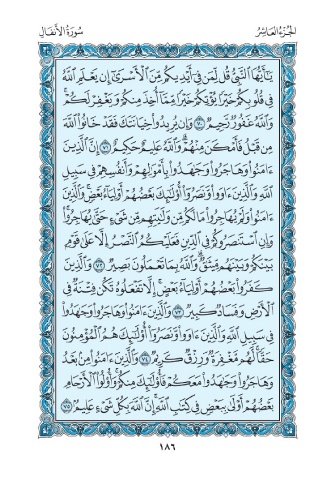 الجزء العاشر
سورة الأنفال
يَٰٓأَيُّهَا ٱلنَّبِيُّ قُل لِّمَن فِيٓ أَيۡدِيكُم مِّنَ ٱلۡأَسۡرَىٰٓ إِن يَعۡلَمِ ٱللَّهُ
فِي قُلُوبِكُمۡ خَيۡرٗا يُؤۡتِكُمۡ خَيۡرٗا مِّمَّآ أُخِذَ مِنكُمۡ وَيَغۡفِرۡ لَكُمۡۚ
وَٱللَّهُ غَفُورٞ رَّحِيمٞ ٧٠ وَإِن يُرِيدُواْ خِيَانَتَكَ فَقَدۡ خَانُواْ ٱللَّهَ
مِن قَبۡلُ فَأَمۡكَنَ مِنۡهُمۡۗ وَٱللَّهُ عَلِيمٌ حَكِيمٌ ٧١ إِنَّ ٱلَّذِينَ
ءَامَنُواْ وَهَاجَرُواْ وَجَٰهَدُواْ بِأَمۡوَٰلِهِمۡ وَأَنفُسِهِمۡ فِي سَبِيلِ
ٱللَّهِ وَٱلَّذِينَ ءَاوَواْ وَّنَصَرُوٓاْ أُوْلَٰٓئِكَ بَعۡضُهُمۡ أَوۡلِيَآءُ بَعۡضٖۚ وَٱلَّذِينَ
ءَامَنُواْ وَلَمۡ يُهَاجِرُواْ مَا لَكُم مِّن وَلَٰيَتِهِم مِّن شَيۡءٍ حَتَّىٰ يُهَاجِرُواْۚ
وَإِنِ ٱسۡتَنصَرُوكُمۡ فِي ٱلدِّينِ فَعَلَيۡكُمُ ٱلنَّصۡرُ إِلَّا عَلَىٰ قَوۡمِۭ
بَيۡنَكُمۡ وَبَيۡنَهُم مِّيثَٰقٞۗ وَٱللَّهُ بِمَا تَعۡمَلُونَ بَصِيرٞ ٧٢ وَٱلَّذِينَ
كَفَرُواْ بَعۡضُهُمۡ أَوۡلِيَآءُ بَعۡضٍۚ إِلَّا تَفۡعَلُوهُ تَكُن فِتۡنَةٞ فِي
ٱلۡأَرۡضِ وَفَسَادٞ كَبِيرٞ ٧٣ وَٱلَّذِينَ ءَامَنُواْ وَهَاجَرُواْ وَجَٰهَدُواْ
فِي سَبِيلِ ٱللَّهِ وَٱلَّذِينَ ءَاوَواْ وَّنَصَرُوٓاْ أُوْلَٰٓئِكَ هُمُ ٱلۡمُؤۡمِنُونَ
حَقّٗاۚ لَّهُم مَّغۡفِرَةٞ وَرِزۡقٞ كَرِيمٞ ٧٤ وَٱلَّذِينَ ءَامَنُواْ مِنۢ بَعۡدُ
وَهَاجَرُواْ وَجَٰهَدُواْ مَعَكُمۡ فَأُوْلَٰٓئِكَ مِنكُمۡۚ وَأُوْلُواْ ٱلۡأَرۡحَامِ
بَعۡضُهُمۡ أَوۡلَىٰ بِبَعۡضٖ فِي كِتَٰبِ ٱللَّهِۚ إِنَّ ٱللَّهَ بِكُلِّ شَيۡءٍ عَلِيمُۢ ٧٥
١٨٦